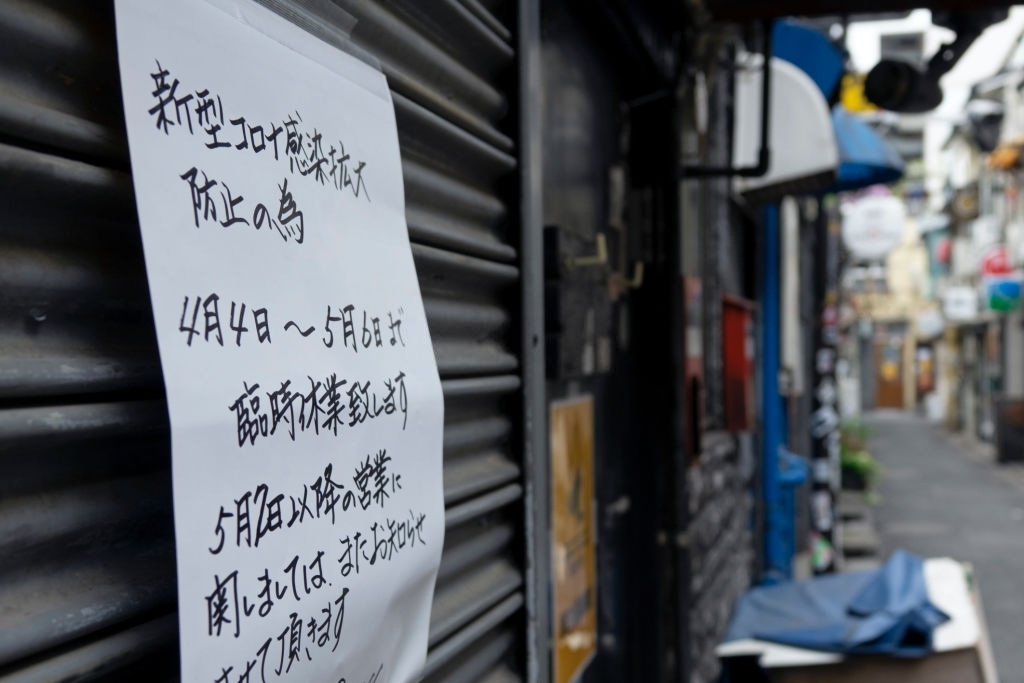 新型コロナ感染拡大
防止の為
4月4日～5月6日まで
臨時休業致します
5月7日以降の営業に
関しましては、またお知らせ
させて頂きます